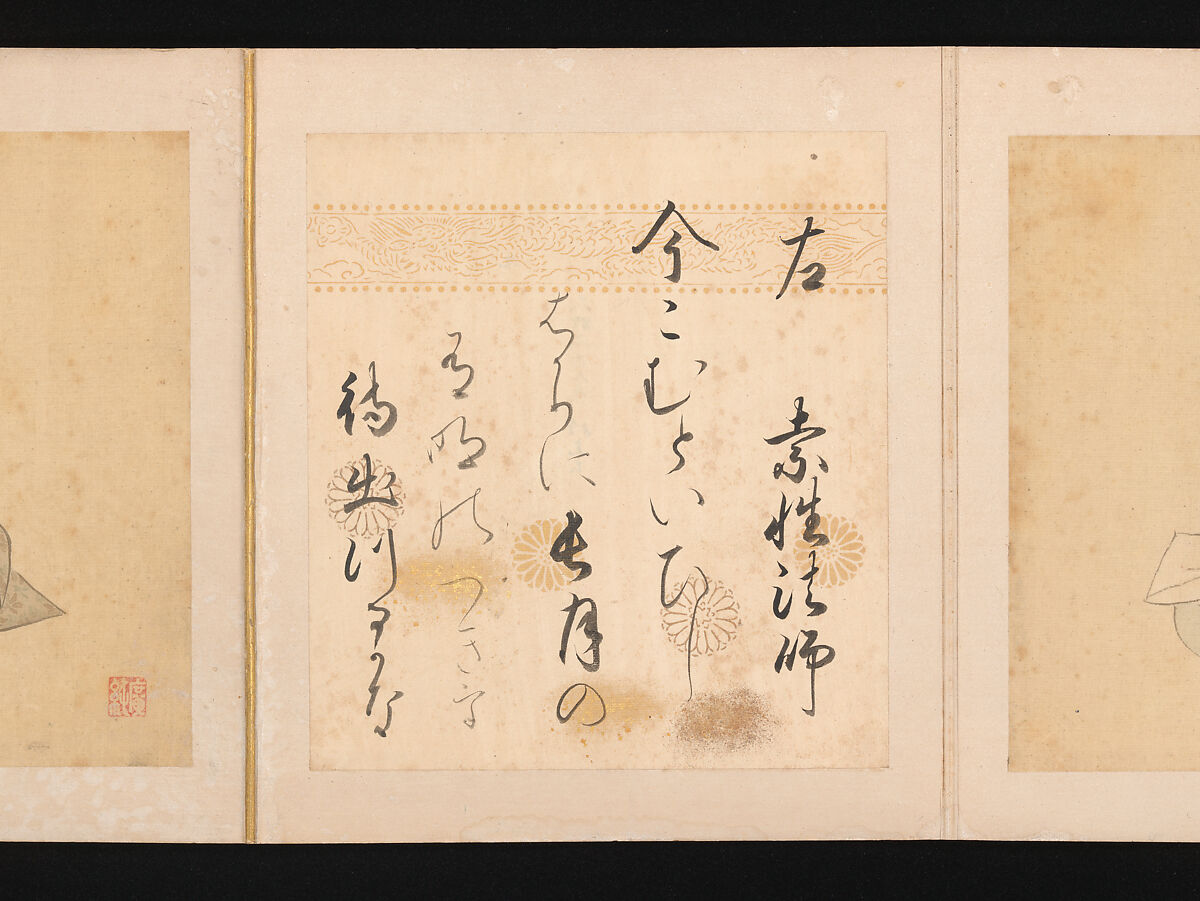 左　素性法師
今こむといひし
はかりに長月の
有明のつきを
待出つるかな